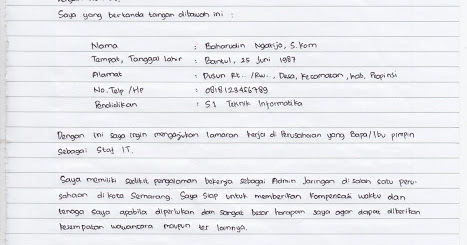 Saya yang bertanda tangan dibawah ini :
Nama : Baharudin Ngarijo, S.Kom
Tempat, Tanggal lahir : Bantul, 25 Juni 1987
Alamat : Dusun Rt.. /Rw.., Desa, Kecamatan, Kab, Propinsi
No. Telp /Hp : 0818123456789
Pendidikan : S1 Teknik Informatika
Dengan ini saya ingin mengajukan lamaran kerja di Perusahaan yang Bapa/Ibu pimpin
Sebagai Staf IT.
Saya memiliki sedikit pengalaman bekerja sebagai Admin Jaringan di salah satu peru-
sahaan di kota Semarang. Saya siap untuk memberikan kompensasi waktu dan
tenaga saya apabila diperlukan dan sangat besar harapan saya agar dapat diberikan
kesempatan wawancara maupun tes lainnya.